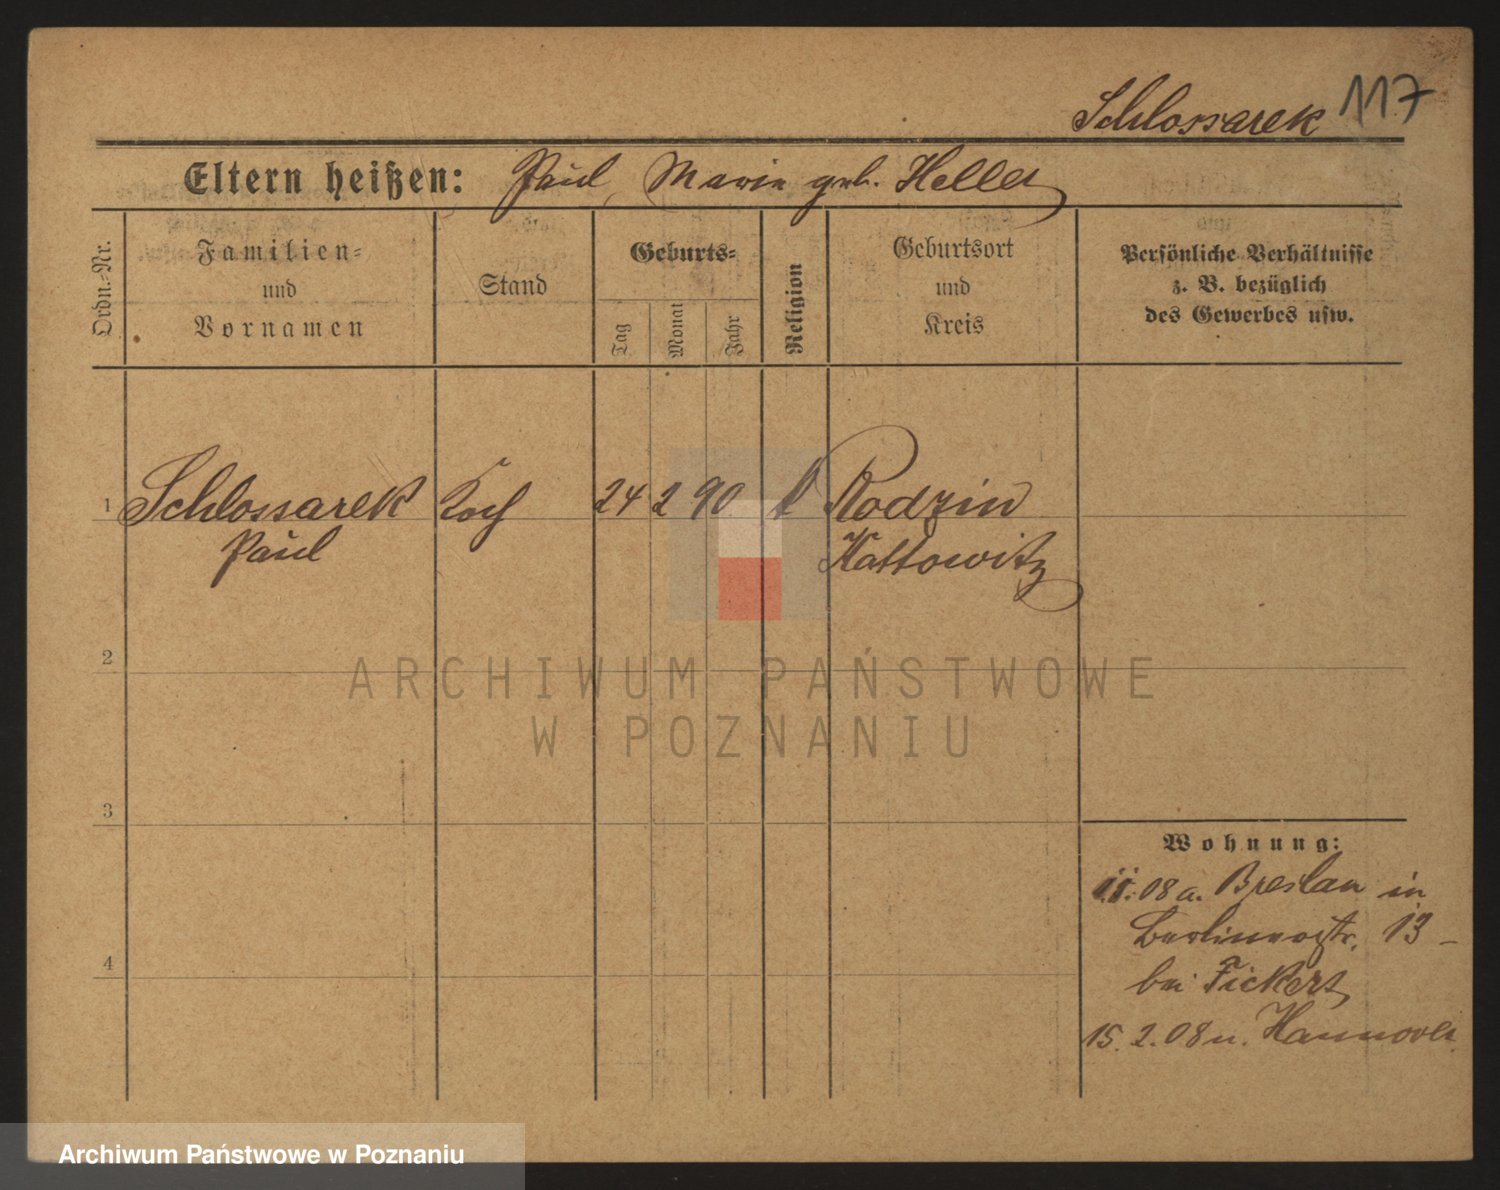 Schlossarek 117
Eltern heißen: Paul, Marie geb. Heller
Ordn.-Nr.
Familien-
und
Vornamen
Stand
Geburts-
Tag
Monat
Jahr
Religion
Geburtsort
und
Kreis
Persönliche Verhältnisse
z. B. bezüglich
des Gewerbes usw.
1 Schlossarek Koch 24 2 90 k Rodzin
Paul Kattowitz
2
3
4
Wohnung:
08 a. Breslau in
Berlinerstr. 13 -
bei Fickert
15. 2. 08 n. Hannover
ARCHIWUM PAŃSTWOWE
W POZNANIU
Archiwum Państwowe w Poznaniu